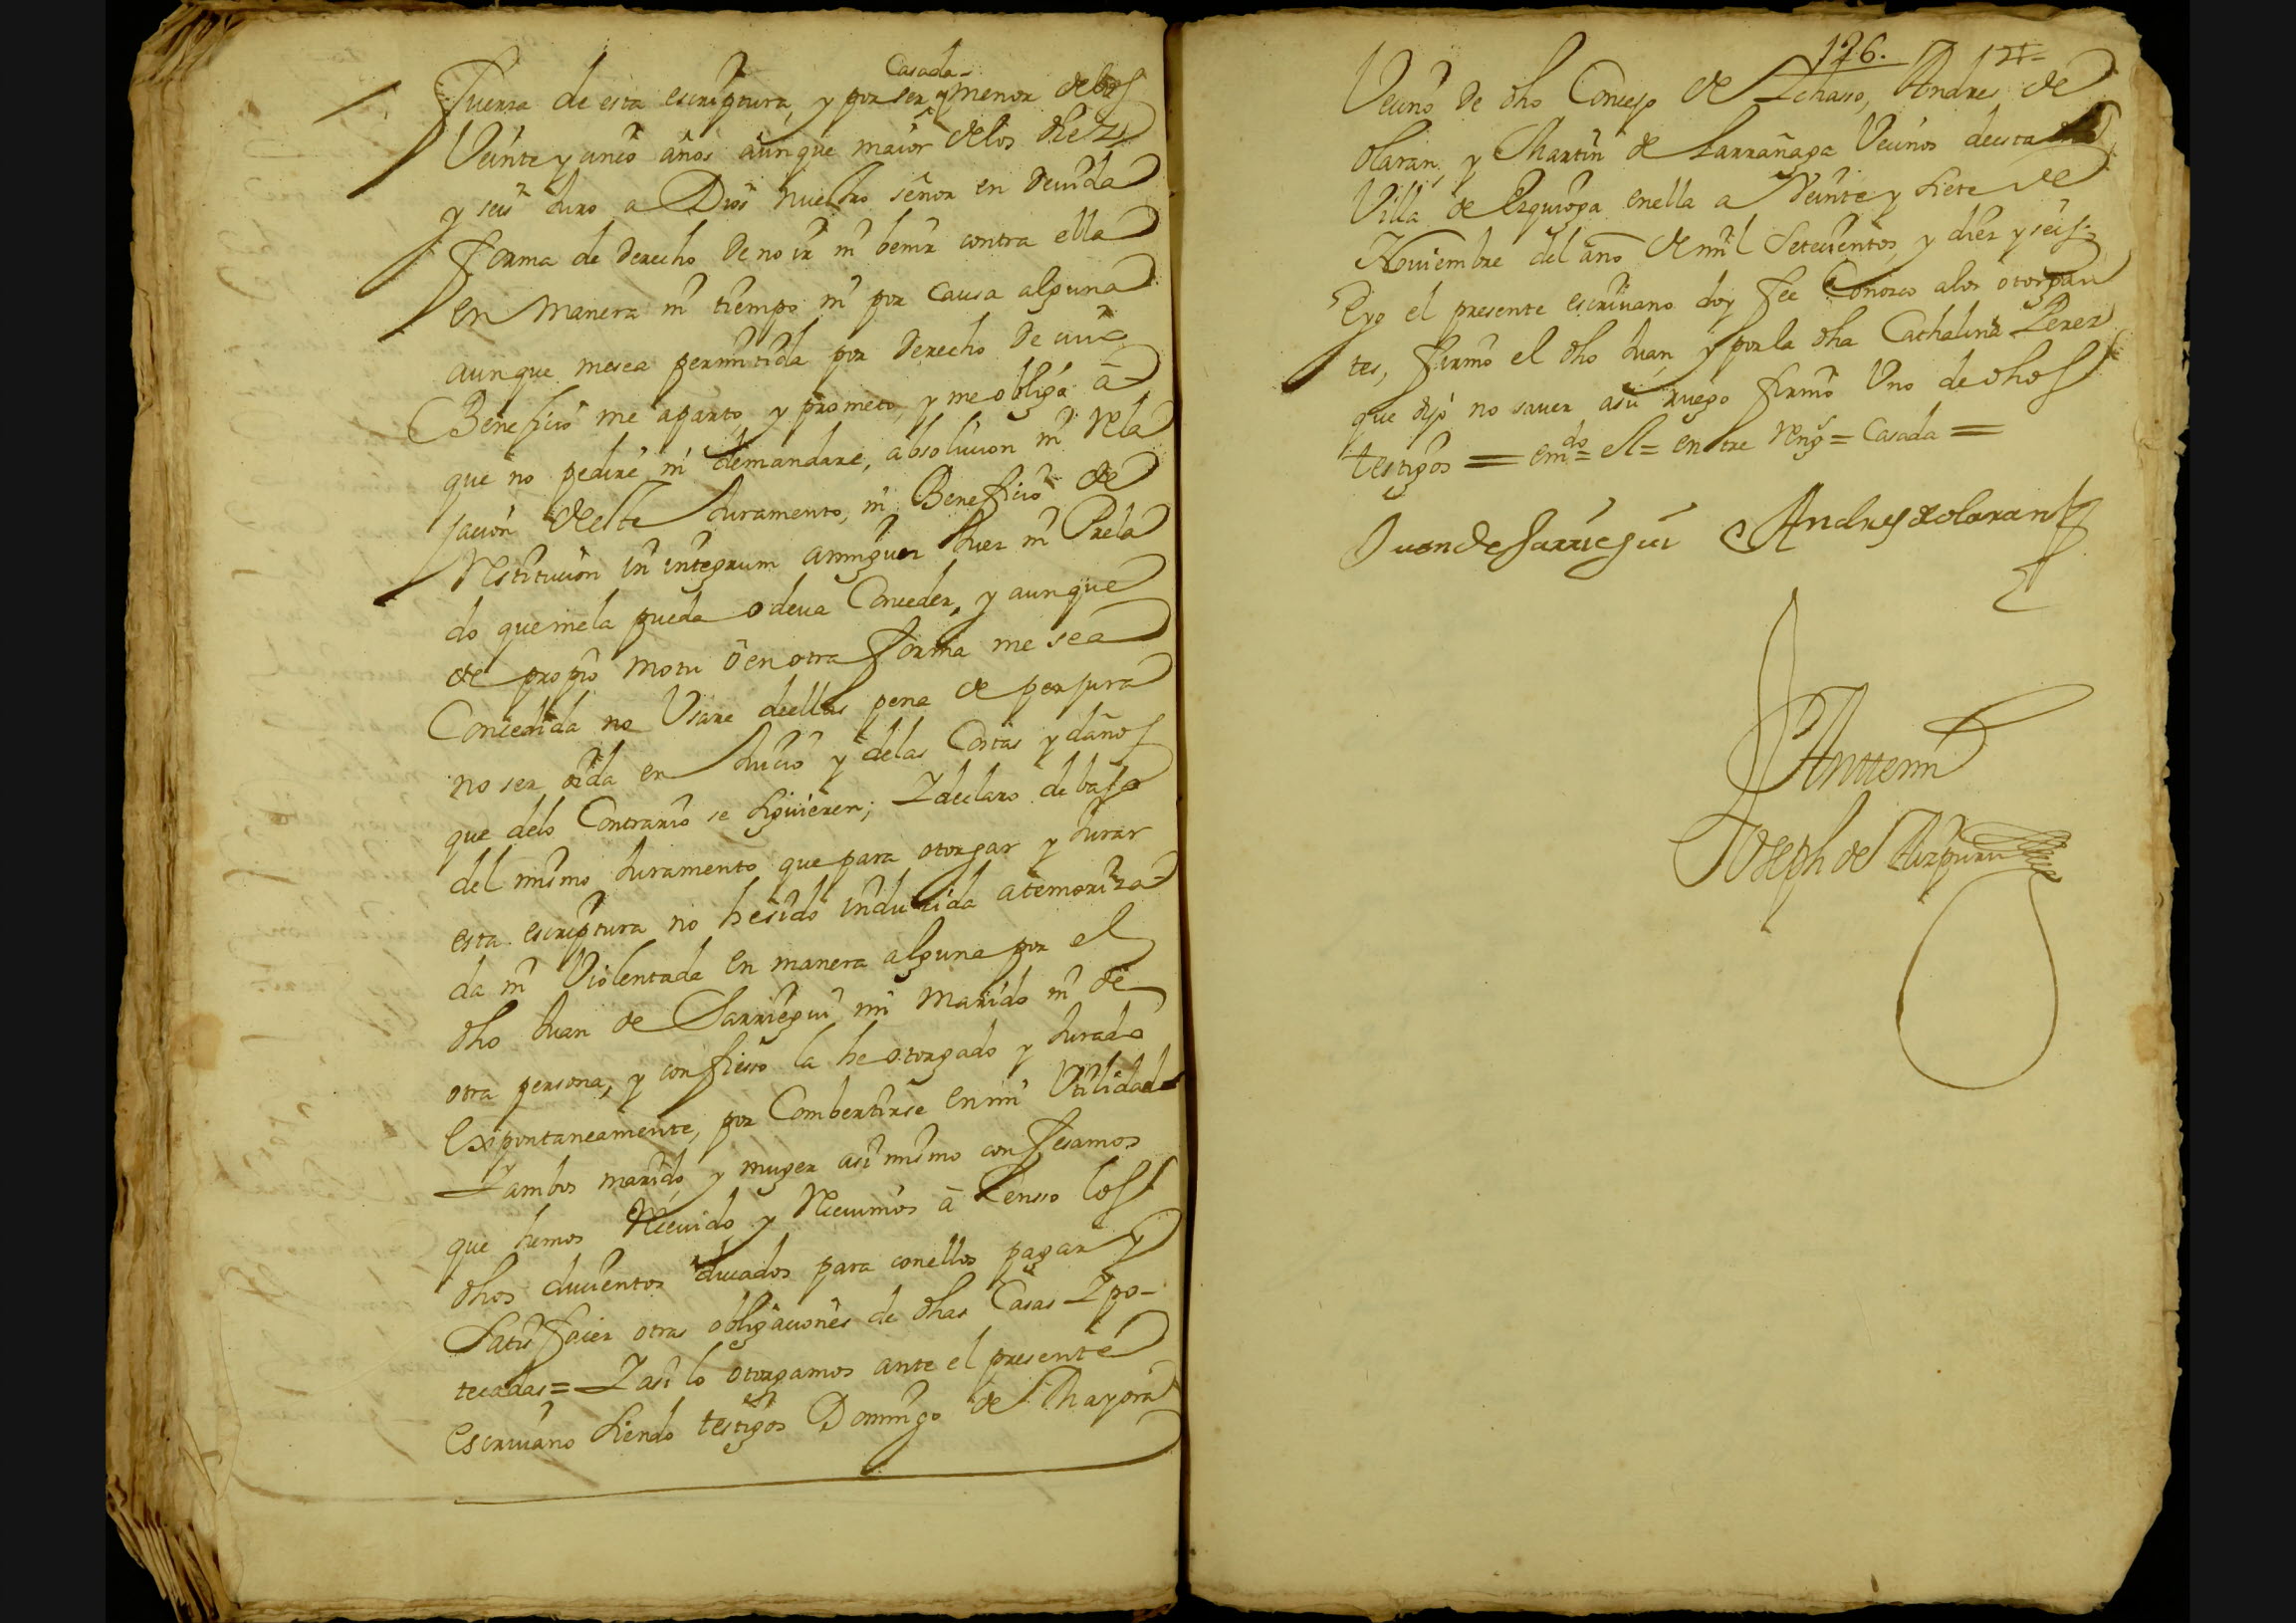 Casada
fuerza de esta escriptura, y por ser y menor de los
Veinte y cinco años aunque maior de los diez
y seis Juro a Dios nuestro señor en Devida
forma de derecho De no ir ni benir contra ella
en manera ni tiempo ni por causa alguna
aunque me sea permitida por derecho De cuio
Beneficio me aparto, y prometo, y me obligo a
que no pediré ni demandaré, absolucion ni Rela
jacion deste Juramento, ni Beneficio de
Restitucion in integrum a ningun Juez ni Prela
do que me la pueda o deva Conceder, y aunque
de propio motu o en otra forma me sea
Concedida no Usare de ellas pena de perjura
no ser oida en Juicio y de las Costas y daños
que de lo Contrario se siguieren; I declaro debajo
del mismo Juramento que para otorgar y Jurar
esta escriptura no he sido inducida atemoriza
da ni Violentada en manera alguna por el
dho Juan de Sarriegui mi marido ni de
otra persona, y confieso la he otorgado y Jurado
Expontaneamente, por Combertirse en mi Utilidad
I ambos marido, y muger asi mismo confesamos
que hemos Recivido y Recivimos à Censso los
dhos ducientos ducados para con ellos pagar y
Satisfacer otras obligaciones de dhas Casas Ipo-
tecadas = I asi lo otorgamos ante el presente
escrivano siendo testigos Domingo de Mayora
126.
Vecino de dho Concejo de Ichaso, Andres de
olaran, y Martin de Larrañaga Vecinos de esta
Villa de Ezquioga en ella a Veinte y siete de
Noviembre del año de mil Setecientos y diez y seis
E yo el presente escrivano doy fee Conozco a los otorgan
tes, firmo el dho Juan y por la dha Cathalina Perez
que dijo no saver a su ruego firmo Uno de dhos
testigos = emdo = el = entre rengs = Casada =
Juan de Sarriegui Andres de olaran
Ante mi
Joseph de Aizpuru